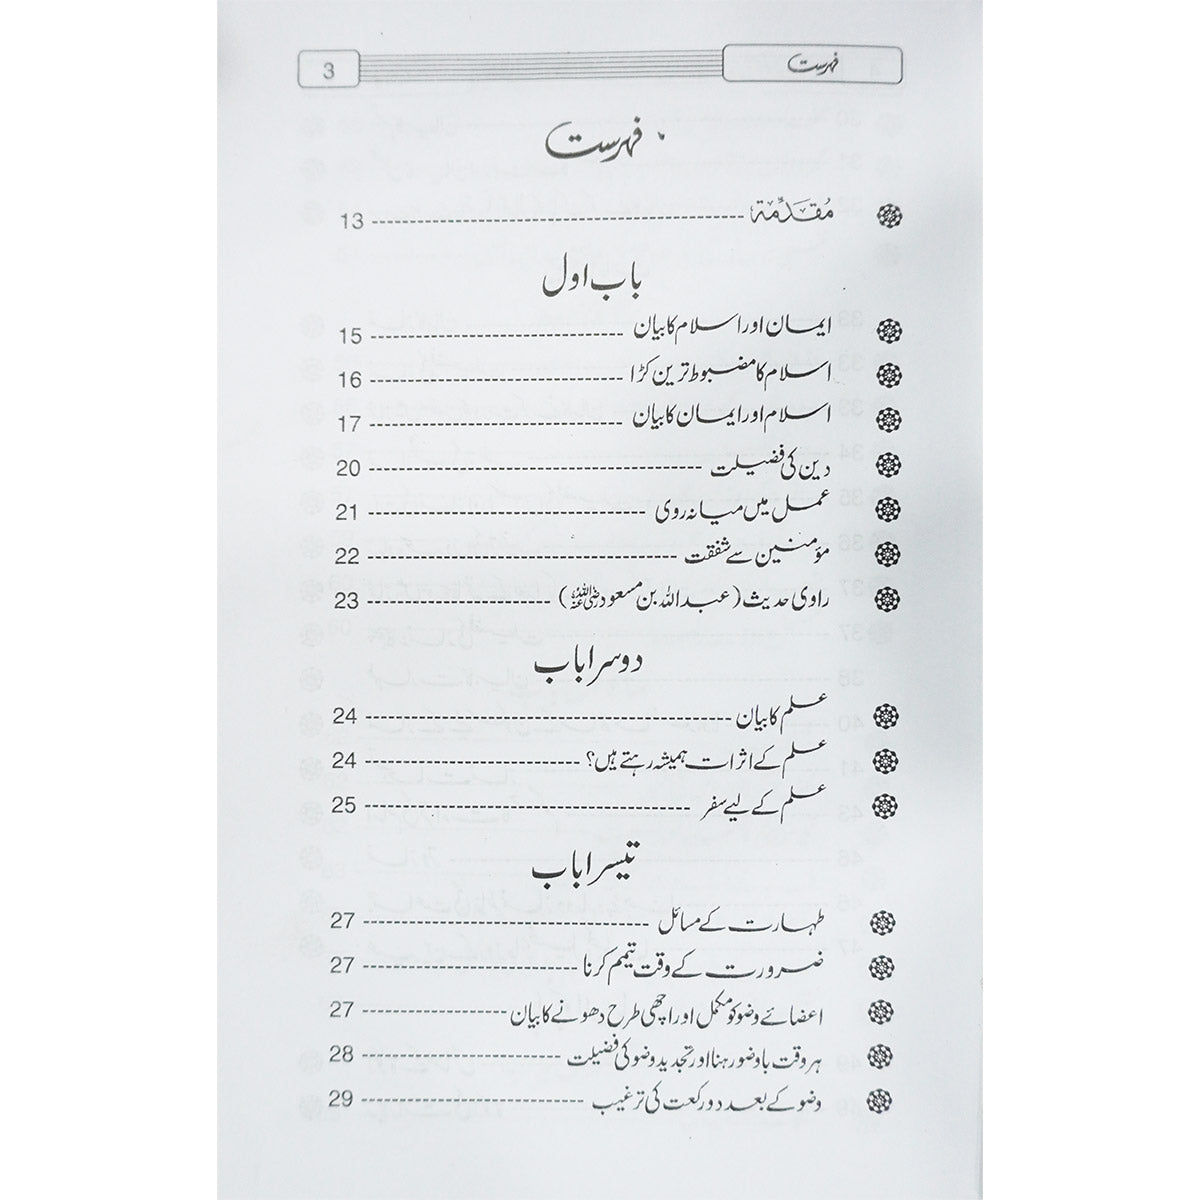 فہرست 3
فہرست
مُقَدِّمَة 13
باب اول
ایمان اور اسلام کا بیان 15
اسلام کا مضبوط ترین کڑا 16
اسلام اور ایمان کا بیان 17
دین کی فضیلت 20
عمل میں میانہ روی 21
مؤمنین سے شفقت 22
راوی حدیث (عبداللہ بن مسعود رضی اللہ عنہ) 23
دوسرا باب
علم کا بیان 24
علم کے اثرات ہمیشہ رہتے ہیں؟ 24
علم کے لیے سفر 25
تیسرا باب
طہارت کے مسائل 27
ضرورت کے وقت تیمم کرنا 27
اعضائے وضو کو مکمل اور اچھی طرح دھونے کا بیان 27
ہر وقت باوضو رہنا اور تجدید وضو کی فضیلت 28
وضو کے بعد دو رکعت کی ترغیب 29